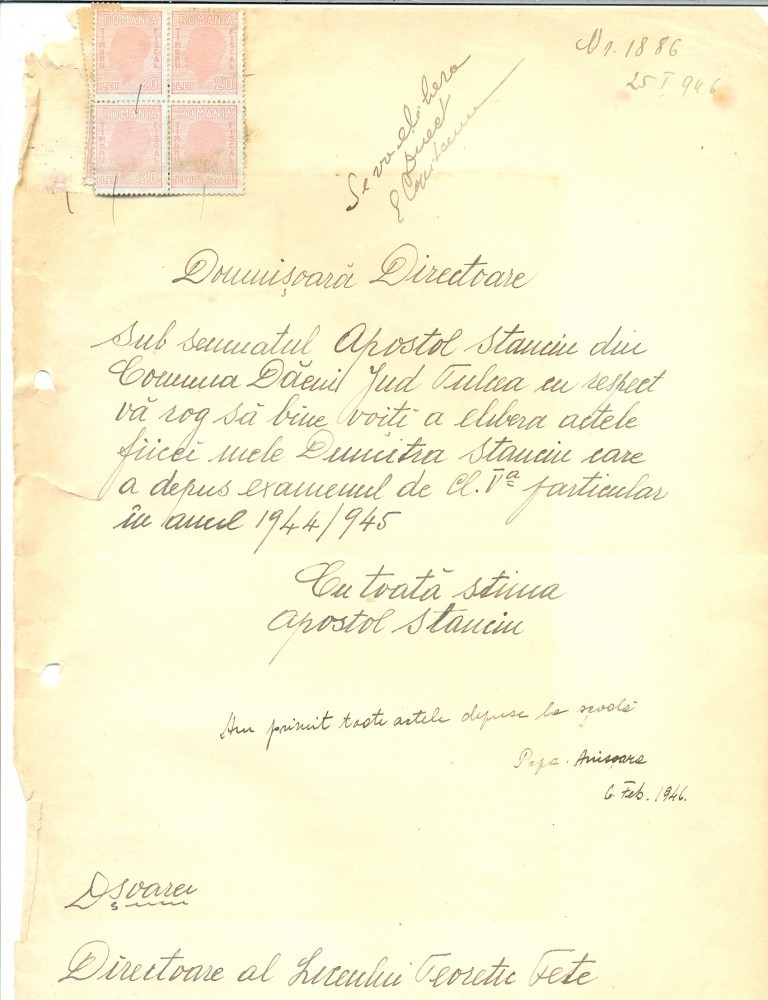 ROMANIA ROMANIA
TIMBRU FISCAL TIMBRU FISCAL
LEI 20 LEI 20
ROMANIA ROMANIA
TIMBRU FISCAL TIMBRU FISCAL
LEI 20 LEI 20
Nr. 1886
25 I 946
Se va elibera
Direct
Domnișoară Directoare
Sub semnatul Apostol Stanciu din
Comuna Dăeni Jud Tulcea cu respect
vă rog să bine voiti a elibera actele
fiicei mele Dumitra Stanciu care
a depus examenul de Cl. Vª particular
în anul 1944/945
Cu toată stima
Apostol Stanciu
Am primit toate actele depuse la școală
Popa Anișoara
6 Feb. 1946.
Dșoarei
Directoare al Liceului Teoretic Fete